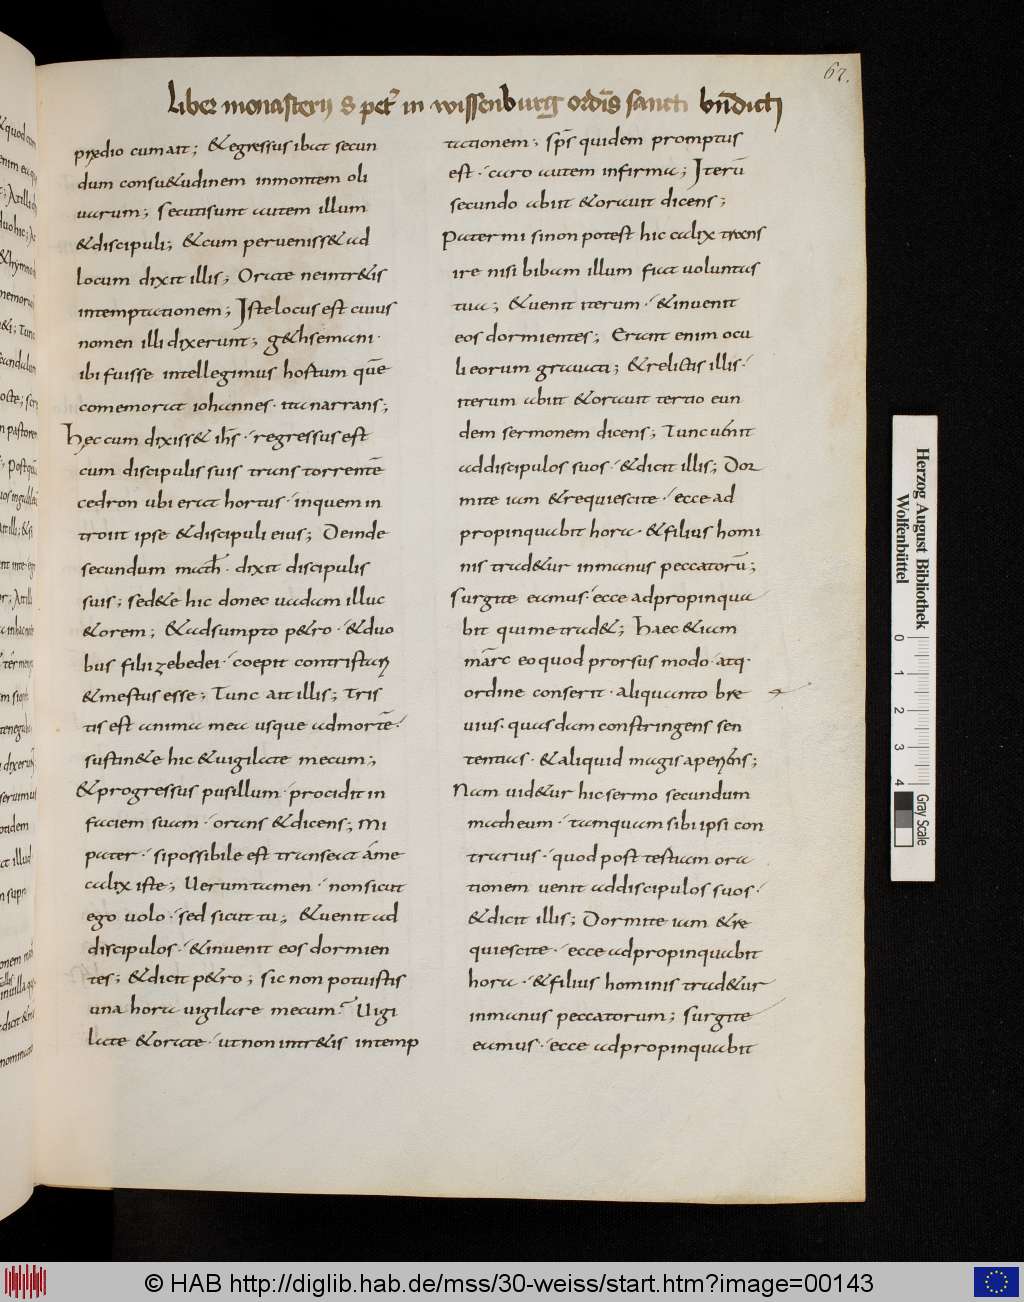 67.
Liber monasterij S petri in wissenburg ordīs sancti bn̄dicti
cum ait; &egressus ibat secun
dum consu&udinem inmontem oli
uarum; secutisunt autem illum
&discipuli; &cum peruenisset ad
locum dixit illis; Orate neintr&is
intemptationem; Iste locus est cuius
nomen illi dixerunt; g&hsemani·
ibi fuisse intellegimus hostum quē
comemorat iohannes· ita narrans;
Hęc cum dixiss& ih̄s· regressus est
cum discipulis suis trans torrentē
cedron ubi erat hortus· inquem in
troiit ipse &discipuli eius; Deinde
secundum math̄· dixit discipulis
suis; sed&e hic donec uadam illuc
&orem; &adsumpto p&ro· &duo
bus filii zebedei· coepit contristari
&mestus esse; Tunc ait illis; Tris
tis est anima mea usque admortē·
sustin&e hic &uigilate mecum;
&progressus pusillum· procidit in
faciem suam· orans &dicens; Mi
pater· si possibile est transeat áme
calix iste; Uerumtamen· nonsicut
ego uolo· sed sicut tu; &uenit ad
discipulos· &inuenit eos dormien
tes; &dicit p&ro; sic non potuistis
una hora uigilare mecum? Uigi
late &orate· ut non intr&is intemp
tationem· sp̄s quidem promptus
est· caro autem infirma; Iterū
secundo abiit &orauit dicens;
Pater mi si non potest hic calix trans
ire nisi bibam illum fiat uoluntas
tua; &uenit iterum· &inuenit
eos dormientes; Erant enim ocu
li eorum grauati; &relictis illis·
iterum abiit &orauit tertio eun
dem sermonem dicens; Tunc uenit
addiscipulos suos· &dicit illis; Dor
mite iam &requiescite· ecce ad
propinquabit hora· &filius homi
nis trad&ur in manus peccatorū;
surgite eamus· ecce adpropinqua
bit qui me trad&; Haec &iam
mārc eo quod prorsus modo· atq·
ordine conserit· aliquanto bre
uius· quasdam constringens sen
tentias· &aliquid magis aperiens;
Nam uid&ur hic sermo secundum
matheum· tamquam sibi ipsi con
trarius· quod post testuam ora
tionem uenit addiscipulos suos·
&dicit illis; Dormite iam &re
quiescite· ecce adpropinquabit
hora· &filius hominis trad&ur
inmanus peccatorum; surgite
eamus· ecce adpropinquabit
Herzog August Bibliothek
Wolfenbüttel
0 1 2 3 4
Gray Scale
© HAB http://diglib.hab.de/mss/30-weiss/start.htm?image=00143